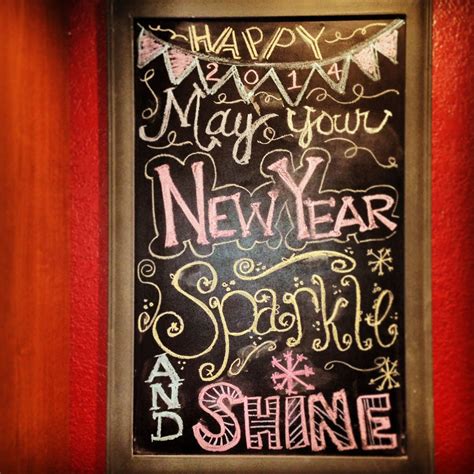 HAPPY
2014
May your
NEW YEAR
Sparkle
AND
SHINE